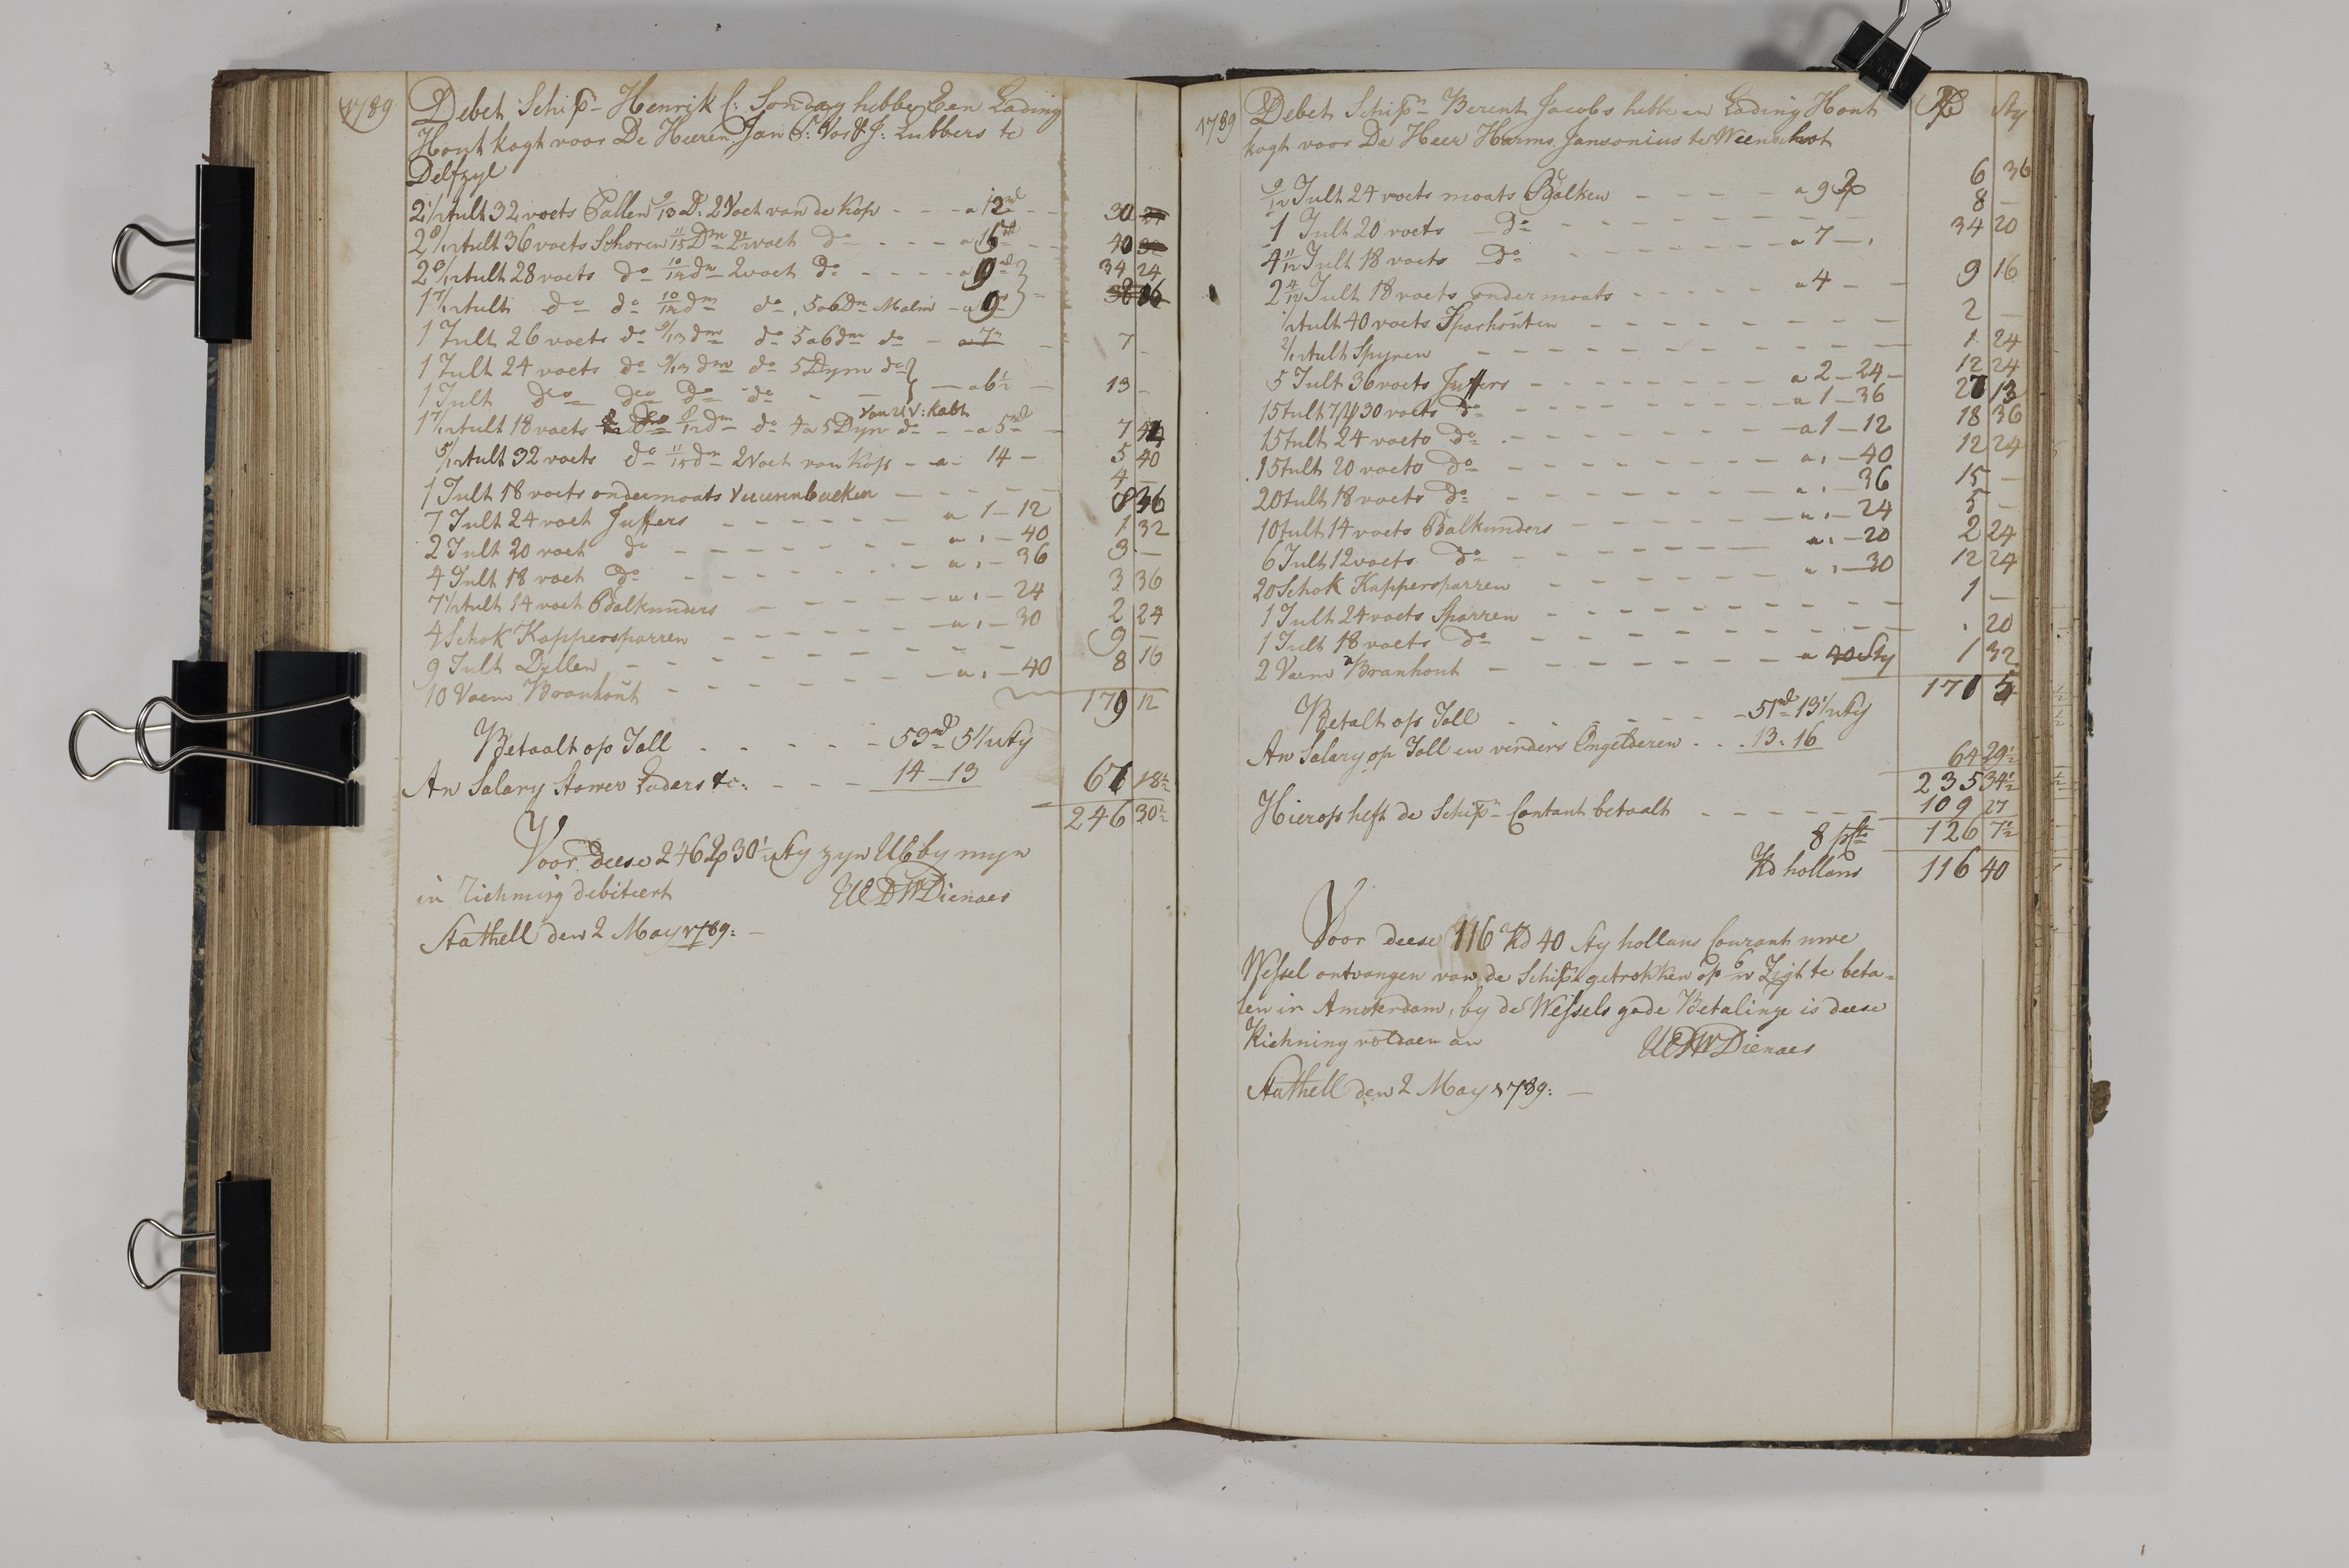 1789
Debet Schipr Henrik C: Sonday hebbe Een Lading
Hout kogt voor De Heeren Jan P: Vos & J: Lubbers te
Delfzyl
2 1/2 tult 32 voets Pallen 9/13 D: 2 Voet van de Kop - - - a 12 rd - - 30
2 8/12 tult 36 voets Schoren 11/15 Dm 2 1/2 voet do - - - - a 15 rd - - 40
tult 28 voets do 10/14 dm 2 voet do - - - - a 9 rd 34 24
1 7/12 tult do do 10/14 dm do, 5 a 6 dm Malm - a 9
1 Tult 26 voets do 9/13 dm do 5 a 6 dm do - a 7 - 7 -
1 Tult 24 voets do 9/13 dm do 5 Dym do
1 Tult do do do do - - - a 6 1/2 - 13 -
1 7/12 tult 18 voets 8/12 dm do 4 a 5 Dym do - - a 5 rd 7 44
5/12 tult 32 voets do 11/15 dm 2 Voet van Kop - a - 14 - 5 40
1 Tult 18 voets ondermaats Vuurenbalken - - - - - 4 -
7 Tult 24 voet Juffers - - - - - - a 1 - 12 8 36
2 Tult 20 voet do - - - - - - - a , - 40 1 32
4 Tult 18 voet do - - - - - - - a , - 36 3 -
7 1/2 tult 14 voet Balkunders - - - - - a , - 24 3 36
4 Schok Kappersparren - - - - - - a , - 30 2 24
9 Tult Dyllen - - - - - - - - - 9 -
10 Vaem Branhout - - - - - - - a , - 40 8 16
179 12
Betaalt op Toll - - - - - 53 rd 5 1/2 sty
An Salary Stower Laders &c: - - - 14 - 13 67 18 1/2
246 30 1/2
Voor deese 246 Rd 30 1/2 sty zyn UE by myn
in Richning debiteert UEDWDienaer
Stathell den 2 May 1789: -
1789
Debet Schipr Berent Jacobs hebbe en Lading Hout Rd Sty
kogt voor De Heer Harms Jansonius te Weenschoot
9/12 Tult 24 voets moats Balken - - - - - a 9 Rd 6 36
1 Tult 20 voets do - - - - - - - - 8 -
4 11/12 Tult 18 voets do - - - - - - a 7 - , 34 20
2 4/12 Tult 18 voets ondermoats - - - - - a 4 - - 9 16
1/2 tult 40 voets Sparhouten - - - - - - - - 2 -
tult Spyren - - - - - - - - - 1 24
5 Tult 36 voets Juffers - - - - - - a 2 - 24 - 12 24
15 tult 30 voets do - - - - - - - a 1 - 36
15 tult 24 voets do - - - - - - - a 1 - 12 18 36
15 tult 20 voets do - - - - - - - a , - 40 12 24
20 tult 18 voets do - - - - - - - a , - 36 15 -
10 tult 14 voets Balkunders - - - - - a , - 24 5 -
6 Tult 12 voets do - - - - - - a , - 20 2 24
20 Schok Kappersparren - - - - - - a , - 30 12 24
1 Tult 24 voets Sparren - - - - - - - - 1 -
1 Tult 18 voets do - - - - - - - - - . 20
2 Vaem Branhout - - - - - - - a 40 Sty 1 32
Betalt op Toll - - - - - - 51 rd 13 1/2 sty
An Salary op Toll en verders Ongelderen - . . 13 : 16 64 29 1/2
235 34 1/2
Hierop heft de Schipr Contant betaalt - - - - - - 109 27
8 pCto 126 7 1/2
Rd hollans 116 40
Voor deese 116 Rd 40 sty hollans Courant uwe
Wessel ontvangen van de Schipr getrokken op 6 w Zigt te beta=
len in Amsterdam, by de Wessels gode Betalinge is deese
Richning voldaen an UEDWDienaer
Stathell den 2 May 1789: -